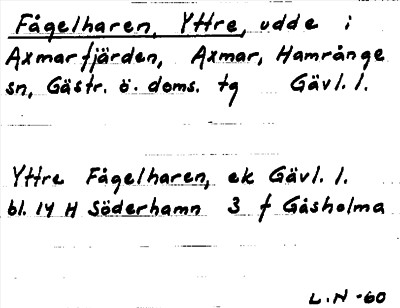 Fågelharen, Yttre, udde i
Axmarfjärden, Axmar, Hamrånge
sn, Gästr. ö. doms. tg Gävl. l.
Yttre Fågelharen, ek Gävl. l.
bl. 14 H Söderhamn 3 f Gåsholma
L.N -60